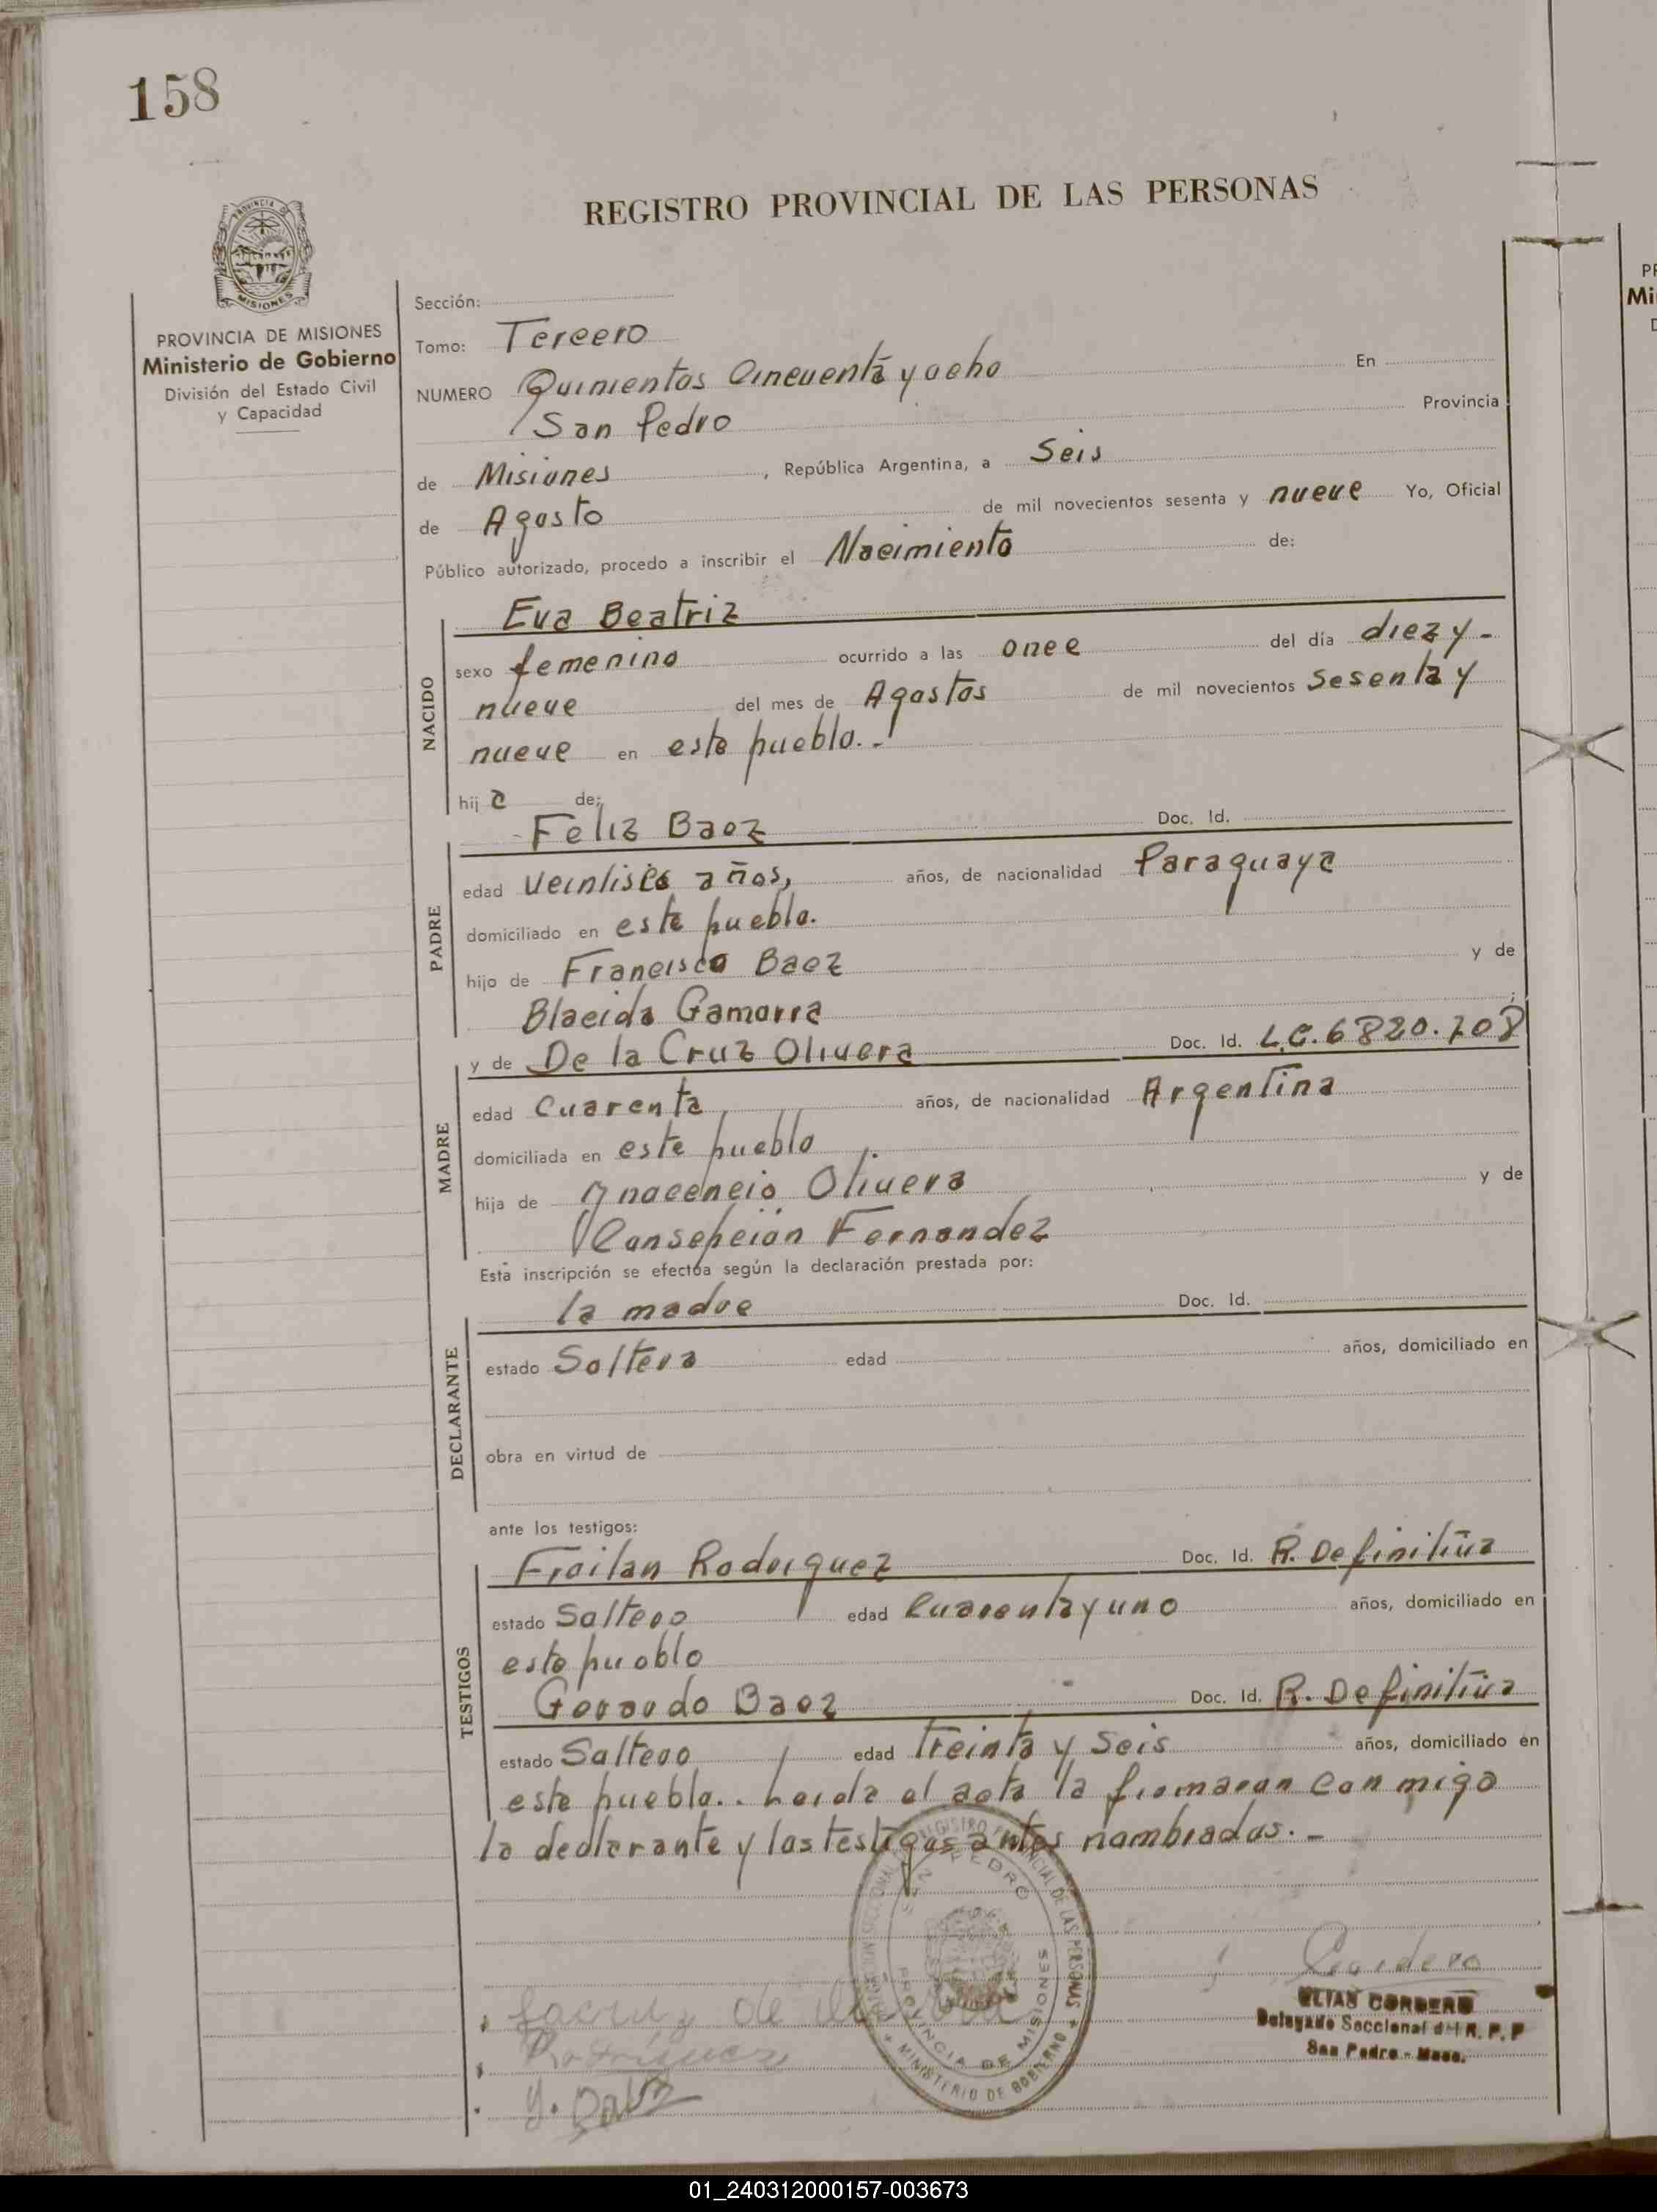 158
REGISTRO PROVINCIAL DE LAS PERSONAS
PROVINCIA DE MISIONES
Ministerio de Gobierno
División del Estado Civil
y Capacidad
Sección:
Tomo: Tercero
NUMERO Quinientos Cincuenta y ocho En
San Pedro Provincia
de Misiones, República Argentina, a Seis
de Agosto de mil novecientos sesenta y nueve Yo, Oficial
Público autorizado, procedo a inscribir el Nacimiento de:
NACIDO
Eva Beatriz
sexo femenino ocurrido a las once del día diez y-
nueve del mes de Agostos de mil novecientos Sesenta y
nueve en este pueblo.-
hij a de:
PADRE
Feliz Baez Doc. Id.
edad Veintiseis años, años, de nacionalidad Paraguaya
domiciliado en este pueblo.
hijo de Francisco Baez y de
Blacida Gamarra
MADRE
y de De la Cruz Olivera Doc. Id. L.C. 6820.708
edad Cuarenta, años, de nacionalidad Argentina
domiciliada en este pueblo
hija de Ynocencio Olivera y de
Consepcion Fernandez
Esta inscripción se efectúa según la declaración prestada por:
DECLARANTE
la madre Doc. Id.
estado Soltera edad años, domiciliado en
obra en virtud de
ante los testigos:
TESTIGOS
Froilan Rodriguez Doc. Id. R. Definitiva
estado Soltero edad Cuarenta y uno años, domiciliado en
este pueblo
Gerardo Baez Doc. Id. R. Definitiva
estado Soltero edad Treinta y Seis años, domiciliado en
este pueblo.. Leida el acta la firmaran con migo
la declarante y los testigos antes nombrados.-
SAN PEDRO
PROVINCIA DE MISIONES
MINISTERIO DE GOBIERNO
Cordero
ELIAS CORDERO
Delegado Seccional del R. P. P
San Pedro - Mnes.
Rodriguez
01_240312000157-003673